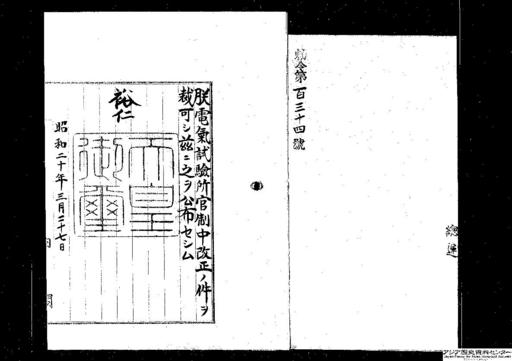 勅令第百三十四號
總連
朕電氣試驗所官制中改正ノ件ヲ
裁可シ茲ニ之ヲ公布セシム
裕仁
天皇御璽
昭和二十年三月二十七日
内閣
アジア歴史資料センター